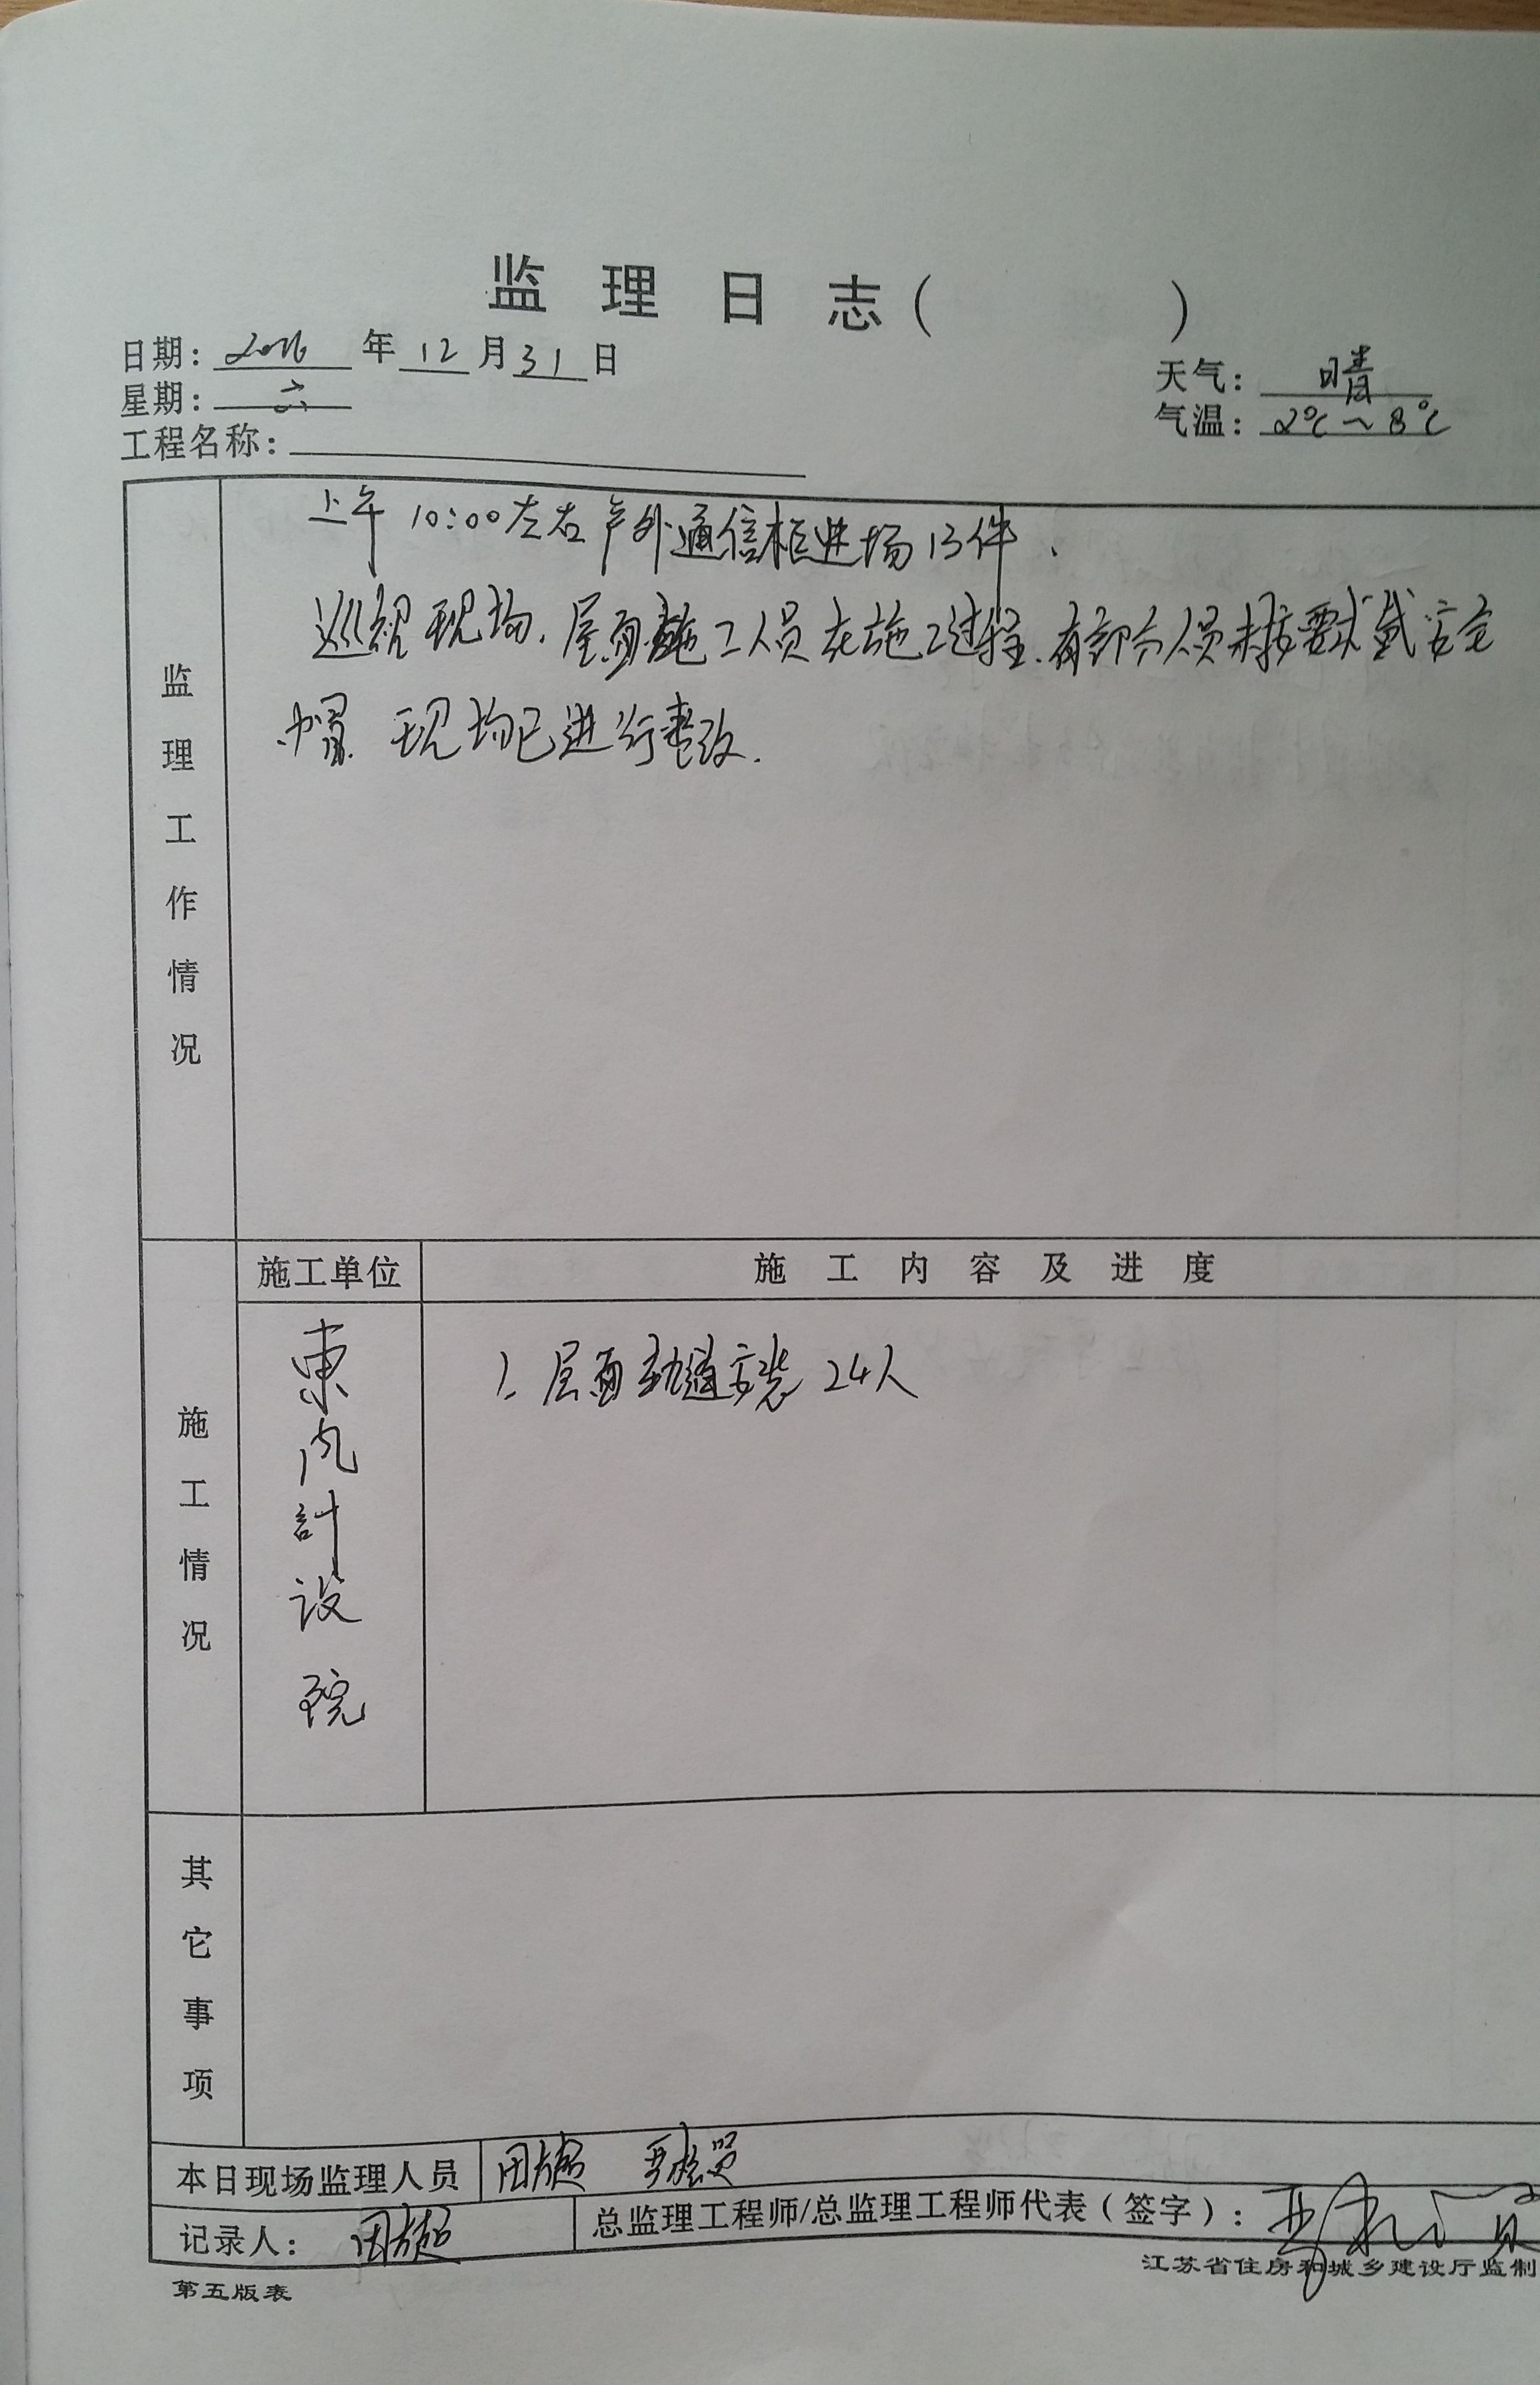 监理日志(    )
日期：2016年12月31日
天气：晴
星期：六
气温：2℃～8℃
工程名称：
监理工作情况
上午10:00左右户外通信柜进场13件.
巡视现场.屋面施工人员在施工过程.有部分人员未按要求戴安全
帽.现场已进行整改.
施工情况
施工单位
施工内容及进度
東内計设院
1. 屋面轨道安装24人
其它事项
本日现场监理人员
记录人：
总监理工程师/总监理工程师代表（签字）：
江苏省住房和城乡建设厅监制
第五版表